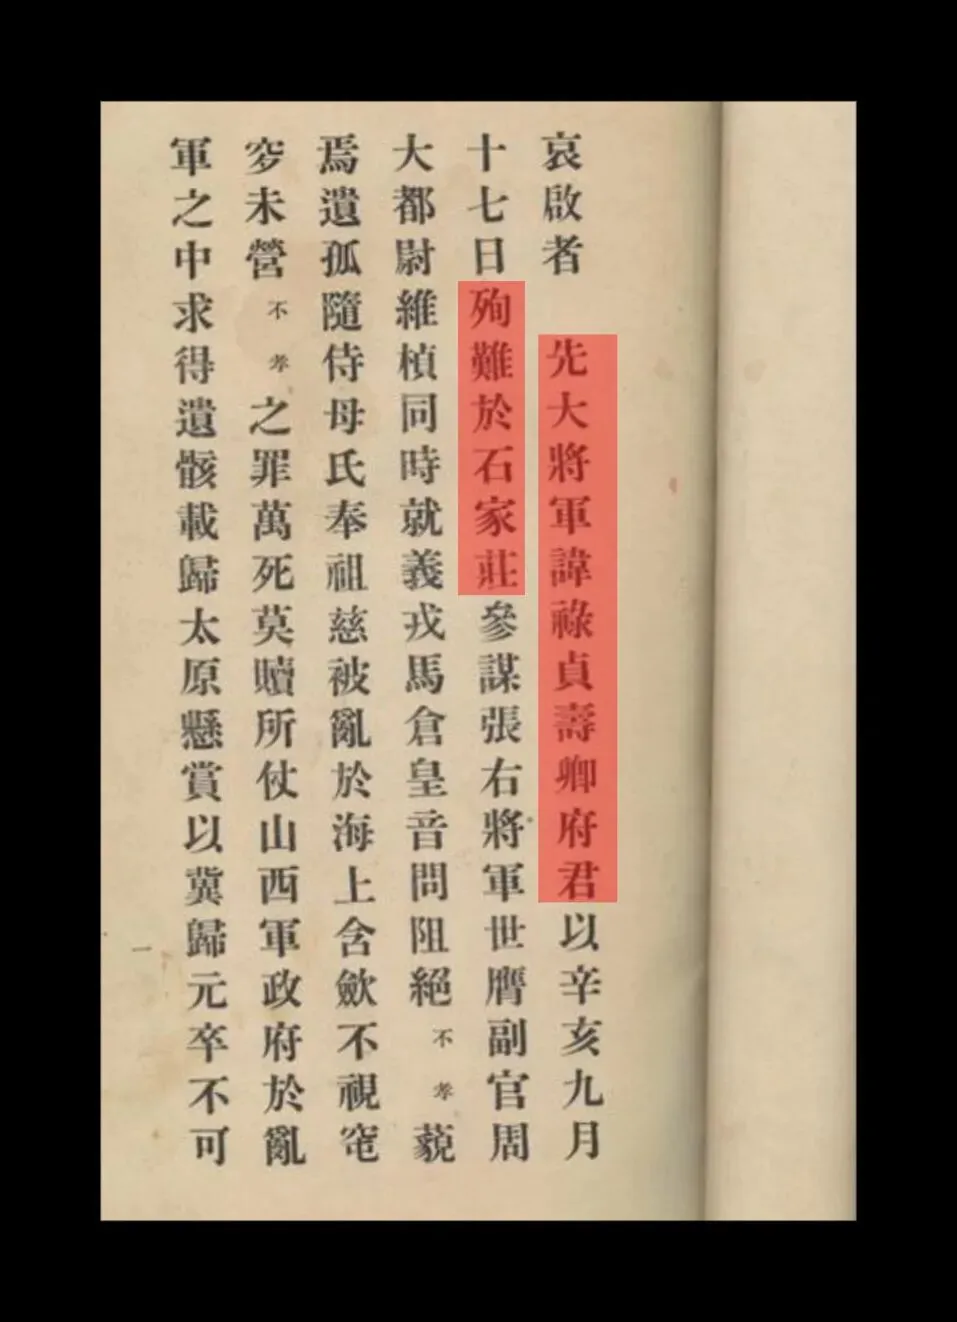 哀啟者　先大將軍諱祿貞壽卿府君以辛亥九月
十七日殉難於石家莊參謀張右將軍世膺副官周
大都尉維楨同時就義戎馬倉皇音問阻絕不孝藐
焉遺孤隨侍母氏奉祖慈被亂於海上含斂不視窀
穸未營不孝之罪萬死莫贖所仗山西軍政府於亂
軍之中求得遺骸載歸太原懸賞以冀歸元卒不可
一